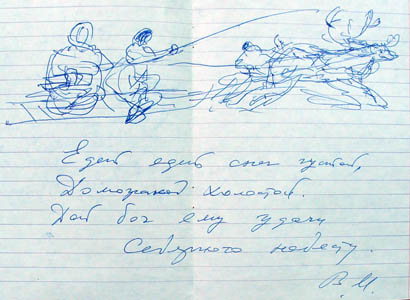 Едет едет снег густой,
Домораной холостой.
Дай бог ему удачи
Северного невесту.
В. М.